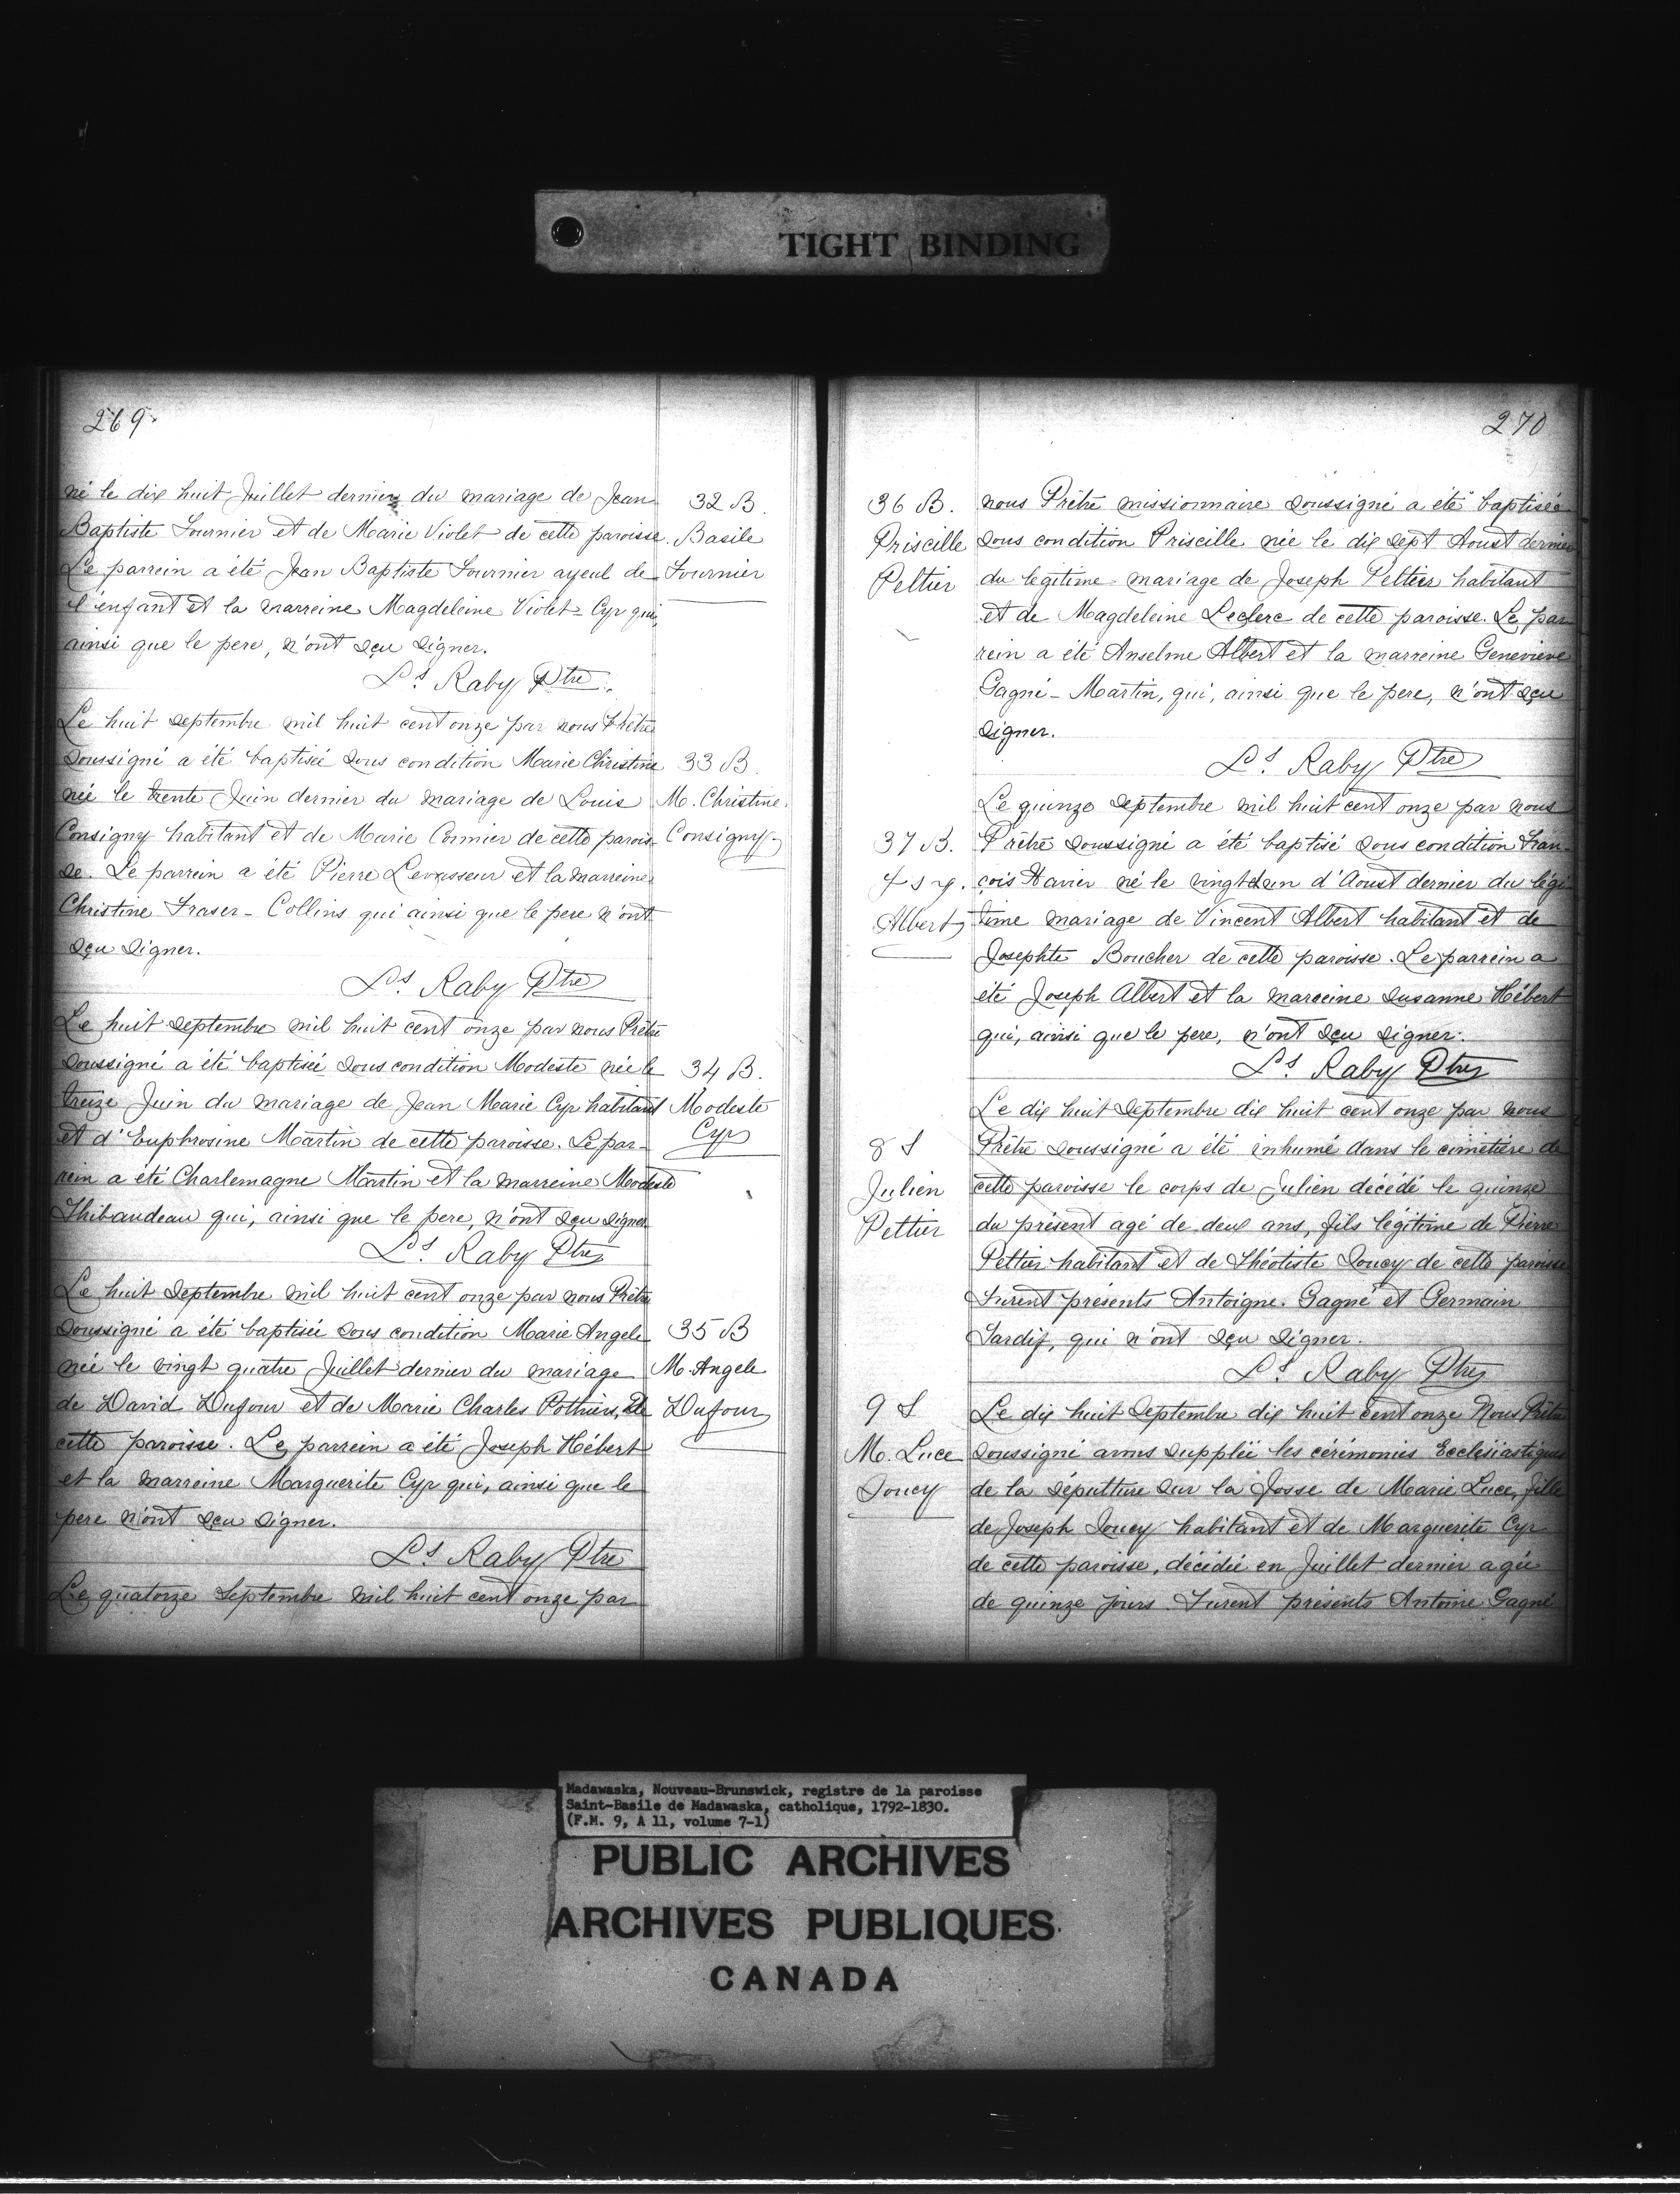 TIGHT BINDING
269
né le dix huit Juillet dernier du mariage de Jean
Baptiste Fournier et de Marie Violet de cette paroisse.
Le parrein a été Jean Baptiste Fournier ayeul de
l'enfant et la marreine Magdeleine Violet-Cyr qui,
ainsi que le pere, n'ont sçu signer.
Ls Raby Ptre.
32 B.
Basile
Fournier
Le huit septembre mil huit cent onze par nous Prêtre
soussigné a été baptisée sous condition Marie Christine
née le trente Juin dernier du mariage de Louis
Consigny habitant et de Marie Cormier de cette parois-
se. Le parrein a été Pierre Levasseur et la marreine
Christine Fraser-Collins qui ainsi que le pere n'ont
sçu signer.
Ls Raby Ptre
33 B.
M. Christine
Consigny
Le huit septembre mil huit cent onze par nous Prêtre
soussigné a été baptisée sous condition Modeste née le
treize Juin du mariage de Jean Marie Cyr habitant
et d'Euphrosine Martin de cette paroisse. Le par-
rein a été Charlemagne Martin et la marreine Modeste
Thibaudeau qui, ainsi que le pere, n'ont sçu signer
Ls Raby Ptre
34 B.
Modeste
Cyr
Le huit Septembre mil huit cent onze par nous Prêtre
soussigné a été baptisée sous condition Marie Angele
née le vingt quatre Juillet dernier du mariage
de David Dufour et de Marie Charles Pothier, de
cette paroisse. Le parrein a été Joseph Hébert
et la marreine Marguerite Cyr qui, ainsi que le
pere n'ont sçu signer.
Ls Raby Ptre
35 B
M. Angele
Dufour
Le quatorze Septembre mil huit cent onze par
270
36 B.
Priscille
Peltier
nous Prêtre missionnaire soussigné a été baptisée
sous condition Priscille née le dix sept Aoust dernier
du legitime mariage de Joseph Peltier habitant
et de Magdeleine Leclerc de cette paroisse. Le par
rein a été Anselme Albert et la marreine Genevieve
Gagné-Martin, qui, ainsi que le pere, n'ont sçu
signer.
Ls Raby Ptre
37 B.
Albert
Le quinze septembre mil huit cent onze par nous
Prêtre soussigné a été baptisé sous condition Fran-
çois Xavier né le vingt d'Aoust dernier du légi
time mariage de Vincent Albert habitant et de
Josephte Boucher de cette paroisse. Le parrein a
été Joseph Albert et la marreine Susanne Hébert
qui, ainsi que le pere, n'ont sçu signer.
Ls Raby Ptre
8 S
Julien
Peltier
Le dix huit Septembre dix huit cent onze par nous
Prêtre soussigné a été inhumé dans le cimetière de
cette paroisse le corps de Julien décédé le quinze
du présent agé de deux ans, fils légitime de Pierre
Peltier habitant et de Théotiste Soucy de cette paroisse
Furent présents Antoigne Gagné et Germain
Sardif, qui n'ont sçu signer.
Ls Raby Ptre
9 S
M. Luce
Soucy
Le dix huit Septembre dix huit cent onze Nous Prêtre
soussigné avons supplëé les cérémonies Ecclésiastiques
de la sépulture sur la fosse de Marie Luce, fille
de Joseph Soucy habitant et de Marguerite Cyr
de cette paroisse, décédée en Juillet dernier agée
de quinze jours. Furent présents Antoine Gagné
Madawaska, Nouveau-Brunswick, registre de la paroisse
Saint-Basile de Madawaska, catholique, 1792-1830.
(F.M. 9, A 11, volume 7-1)
PUBLIC ARCHIVES
ARCHIVES PUBLIQUES
CANADA